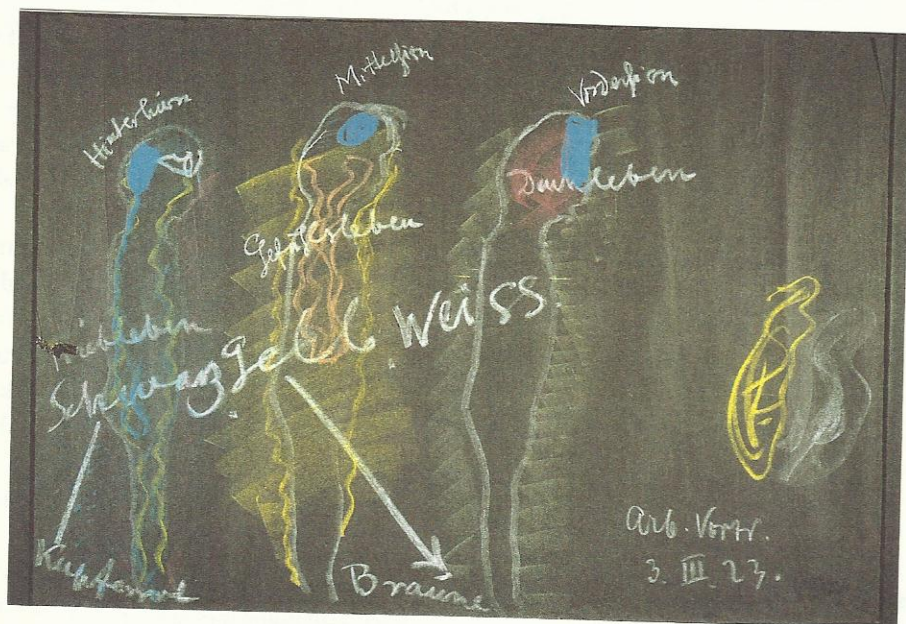 Hinterhirn
Mittelhirn
Vorderhirn
Denkleben
Gefühlsleben
Triebleben
Schwarz. Gelb. Weiss.
Kupferrot
Braune
Arb. Vortr.
3. III. 23.